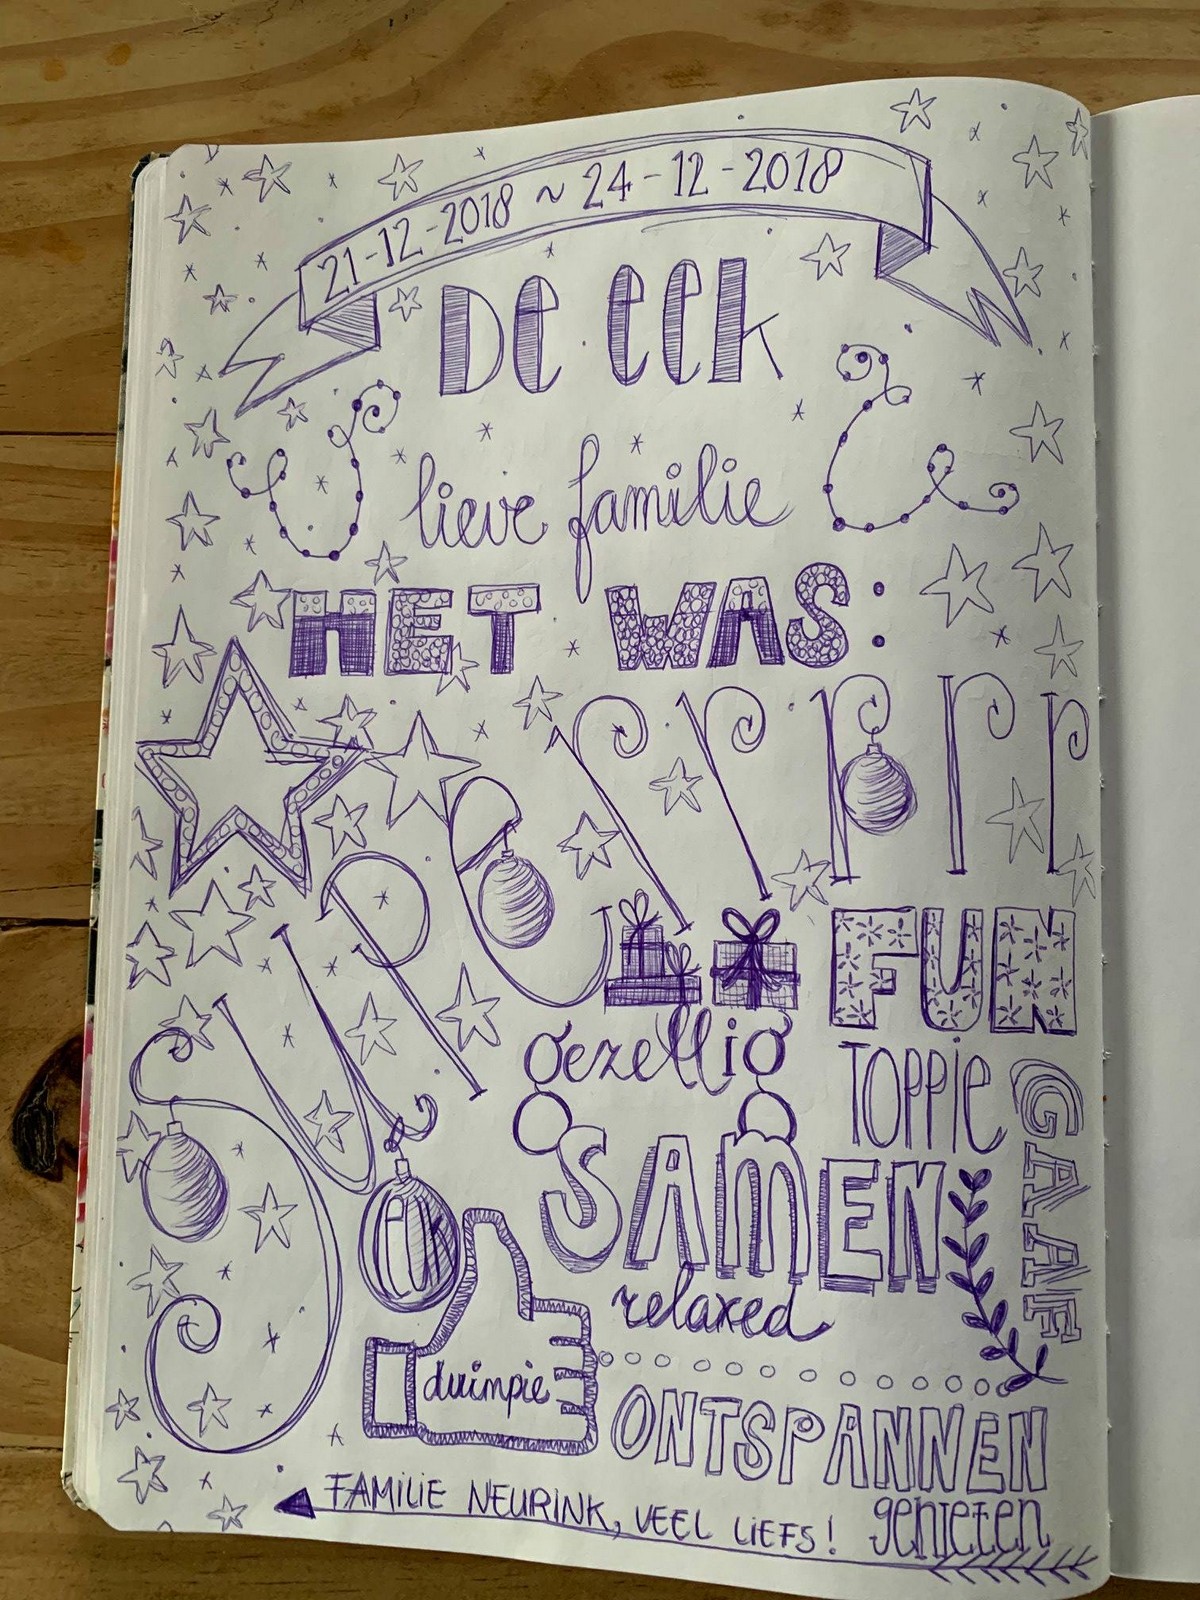 21-12-2018 ~ 24-12-2018
De eek
lieve familie
HET WAS:
SUPErrrrr
FUN
gezellig
TOPPIE
GAAF
SAMEN
leuk
relaxed
duimpie
ONTSPANNEN
genieten
FAMILIE NEURINK, VEEL LIEFS!